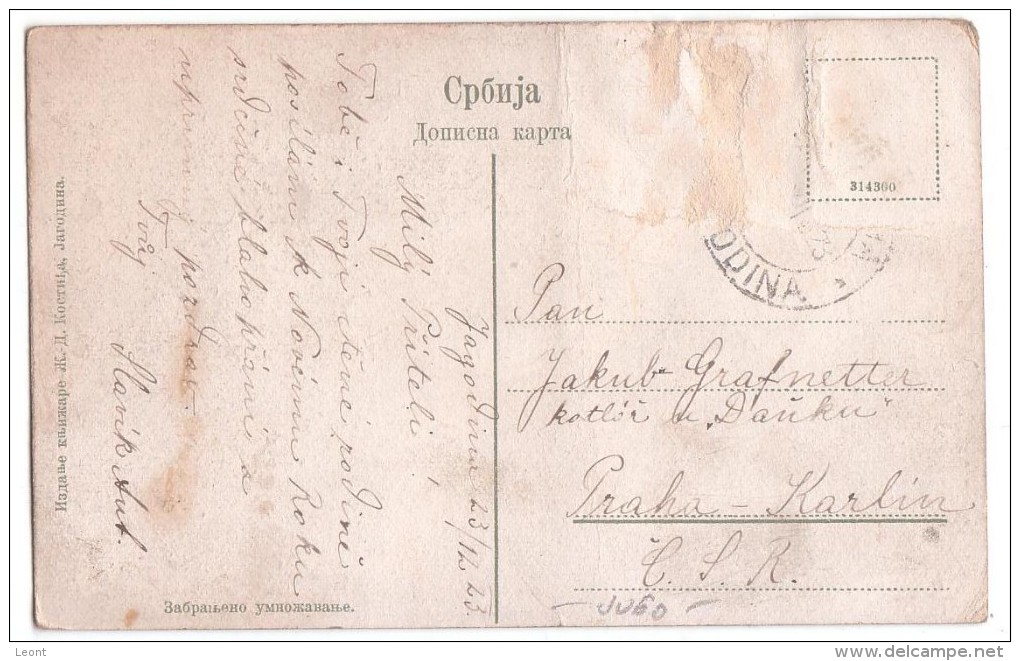 Србија
Дописна карта
314360
ODINA
Jagodina 23/12 23
Milý Příteli,
Tobě i Tvojí ctěné rodině
posílám k Novému Roku
srdečné blahopřání a
upřímný pozdrav.
Tvůj
Slavík Ant.
Pan
Jakub Grafnetter
kotlář u „Daňku"
Praha - Karlín
Č. S. R.
- JUGO -
Издање књижаре Ж. Д. Костића, Јагодина.
Забрањено умножавање.
Leont
www.delcampe.net